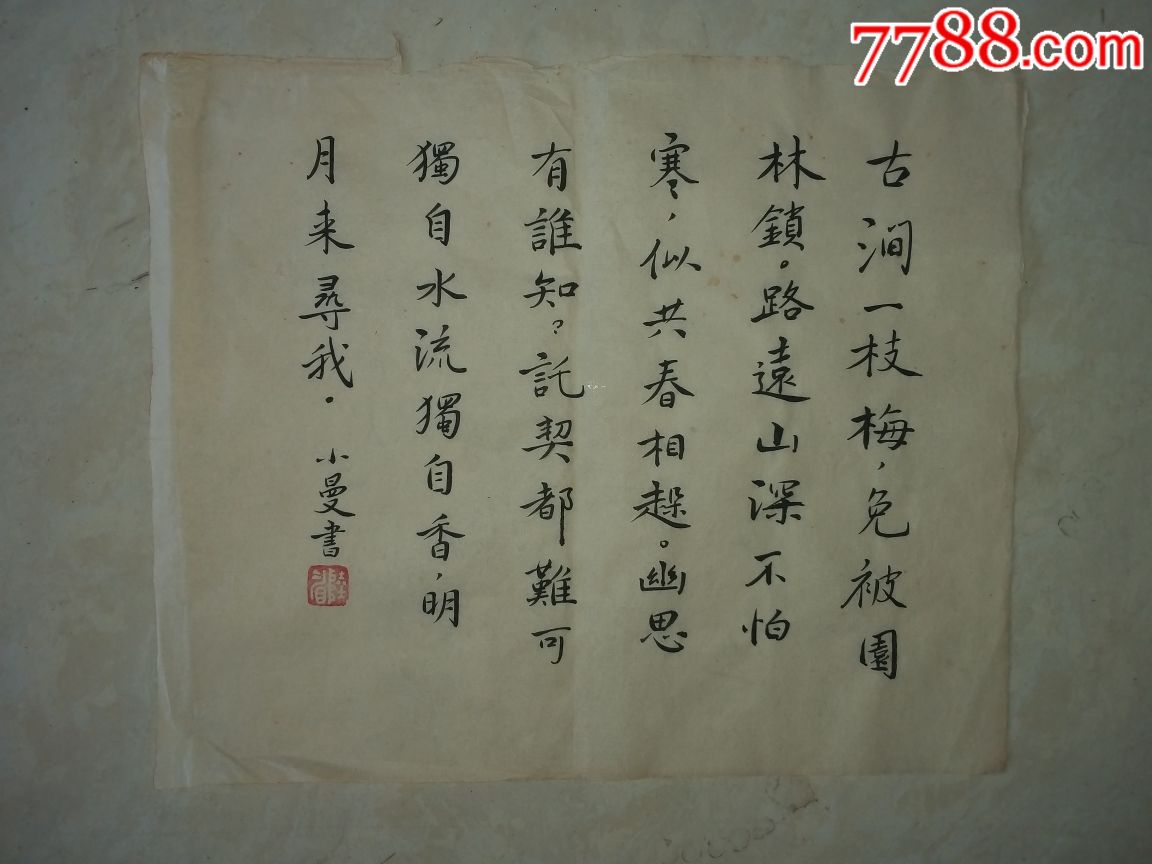 7788.com
古澗一枝梅，免被園
林鎖。路遠山深不怕
寒，似共春相趓。幽思
有誰知？託契都難可
獨自水流獨自香，明
月来尋我．
小曼書